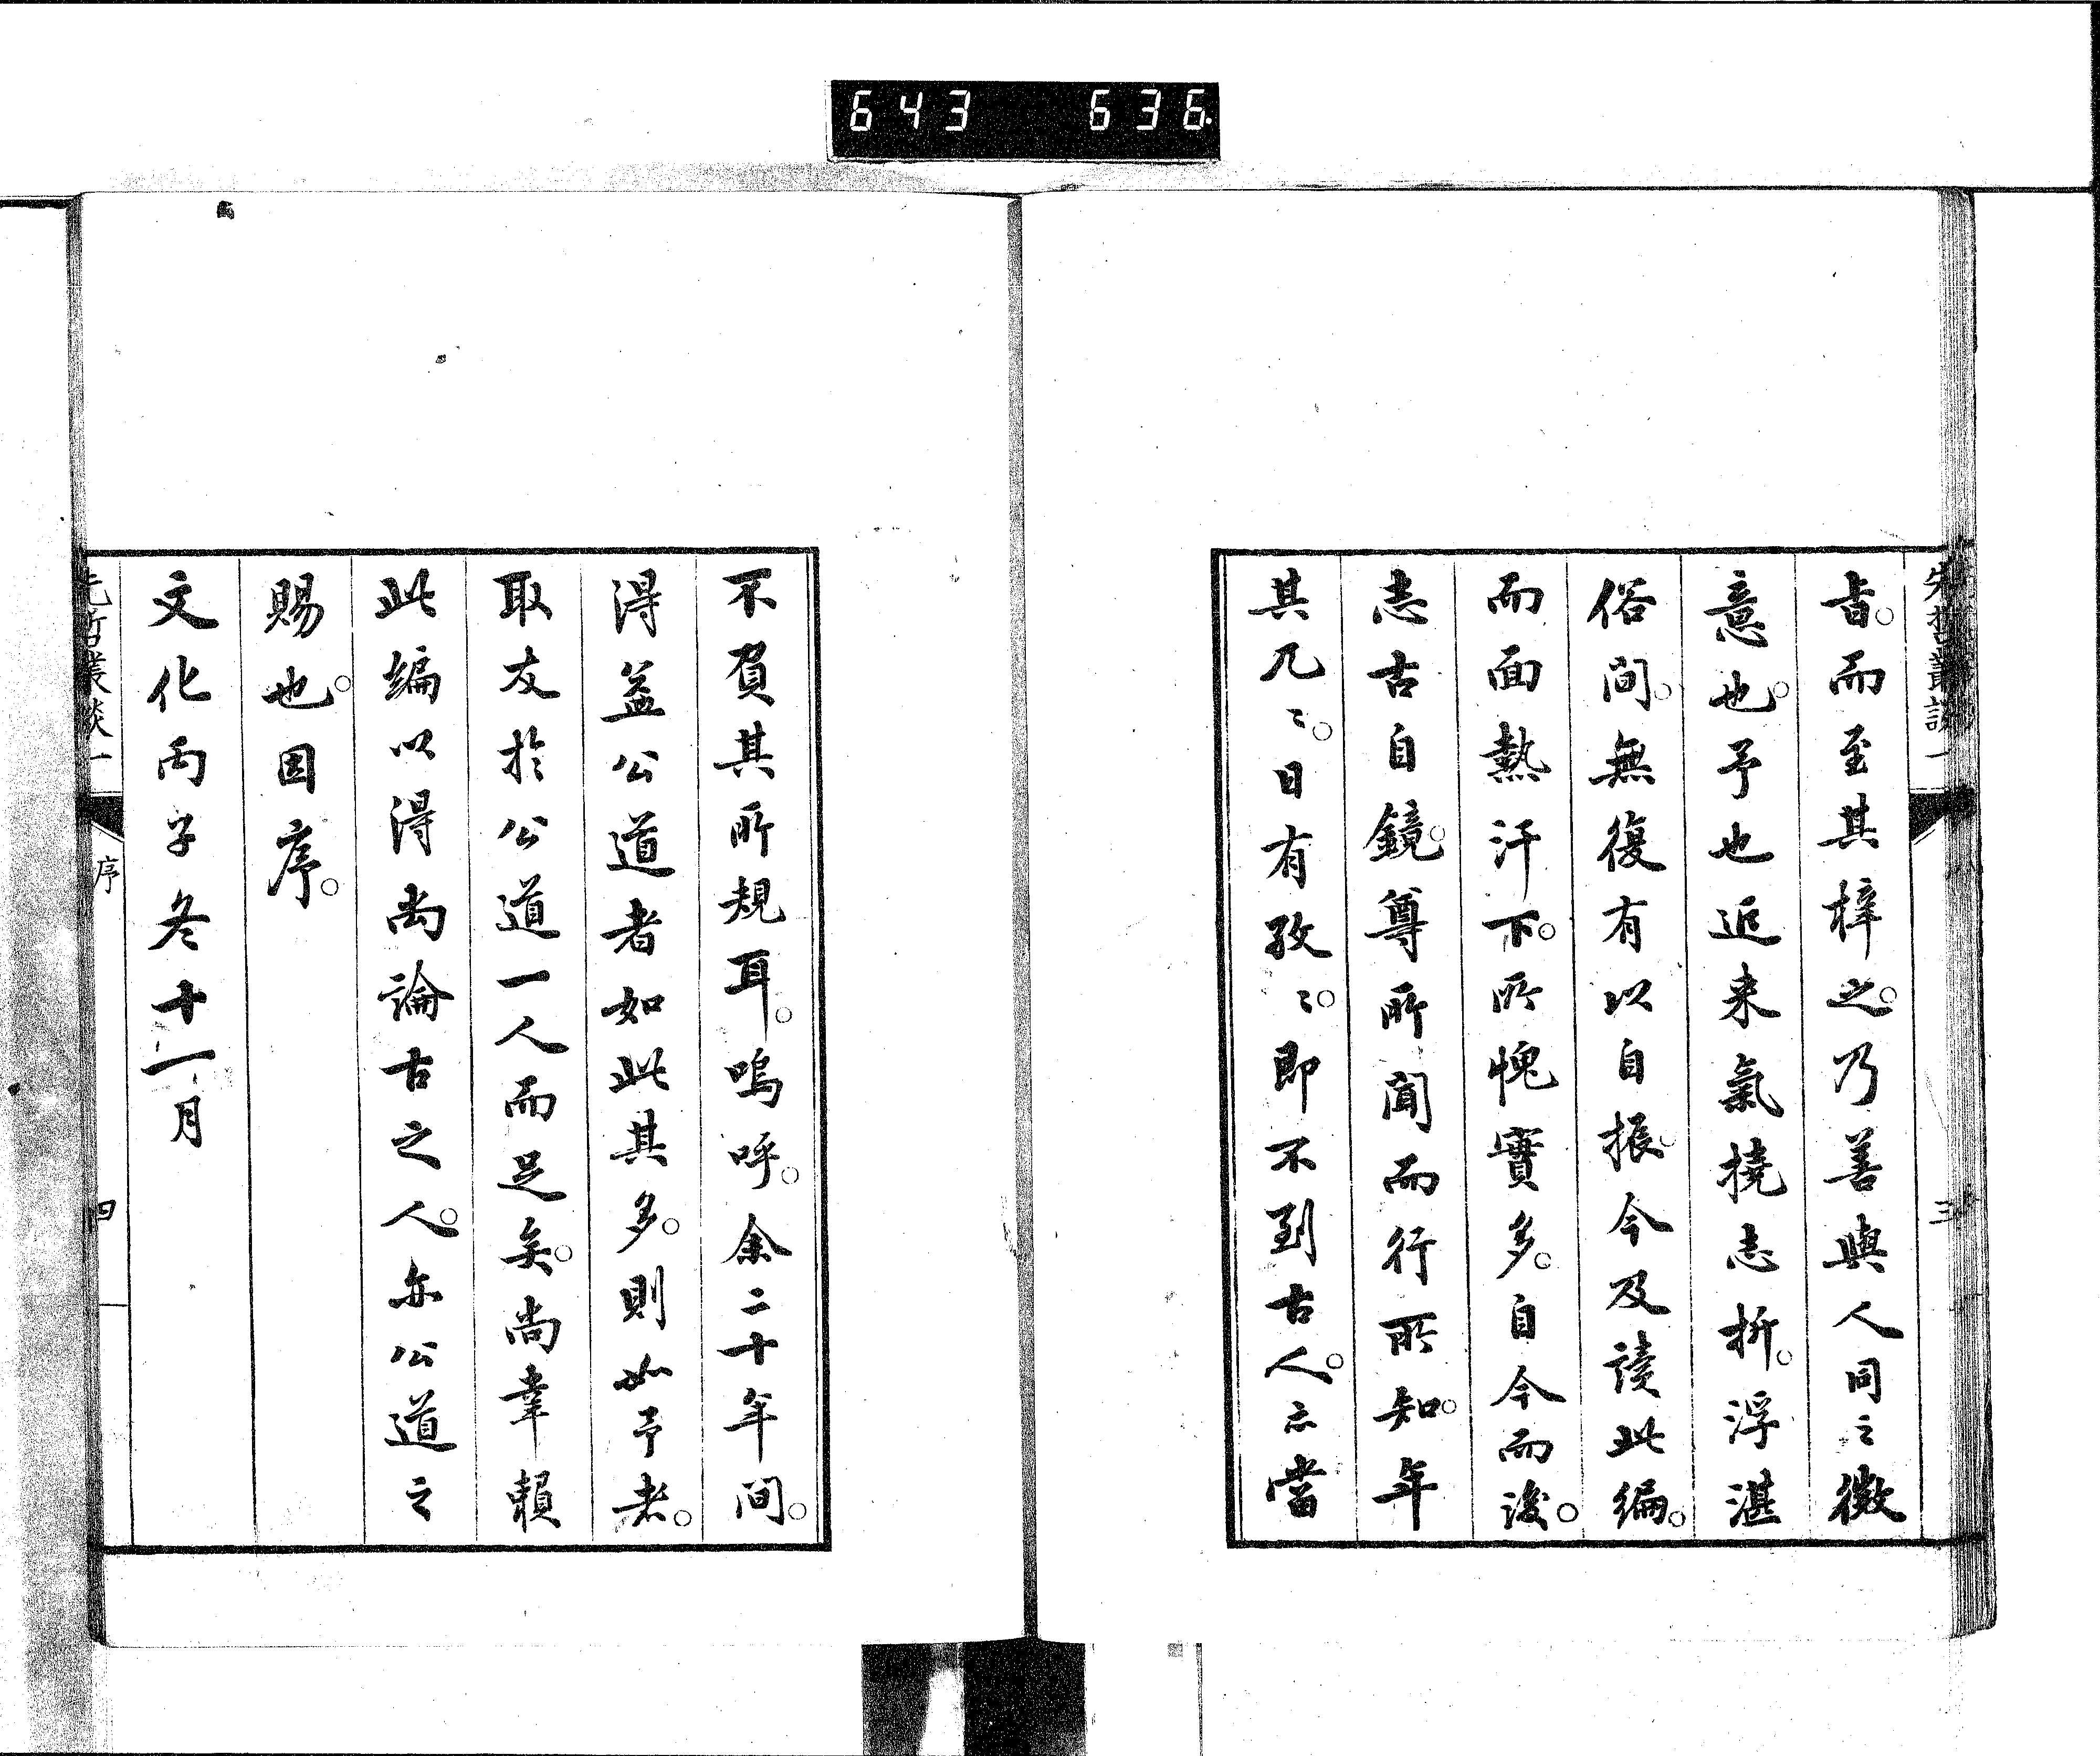 643 636.
先哲叢談一
三
旨。而至其梓之。乃善與人同之微
意也。予也近来氣撓志折。浮湛
俗間。無復有以自振。今及読此編。
而面熱汗下。所愧實多。自今而後。
志古自鏡。尊所聞而行所知。年
其几〻。日有孜〻。即不到古人。亦當
不負其所規耳。嗚呼。余二十年間。
得益公道者如此其多。則如予者。
取友於公道一人而足矣。尚幸頼
此編以得尚論古之人。亦公道之
賜也。因序。
文化丙子冬十一月
先哲叢談一
序
四